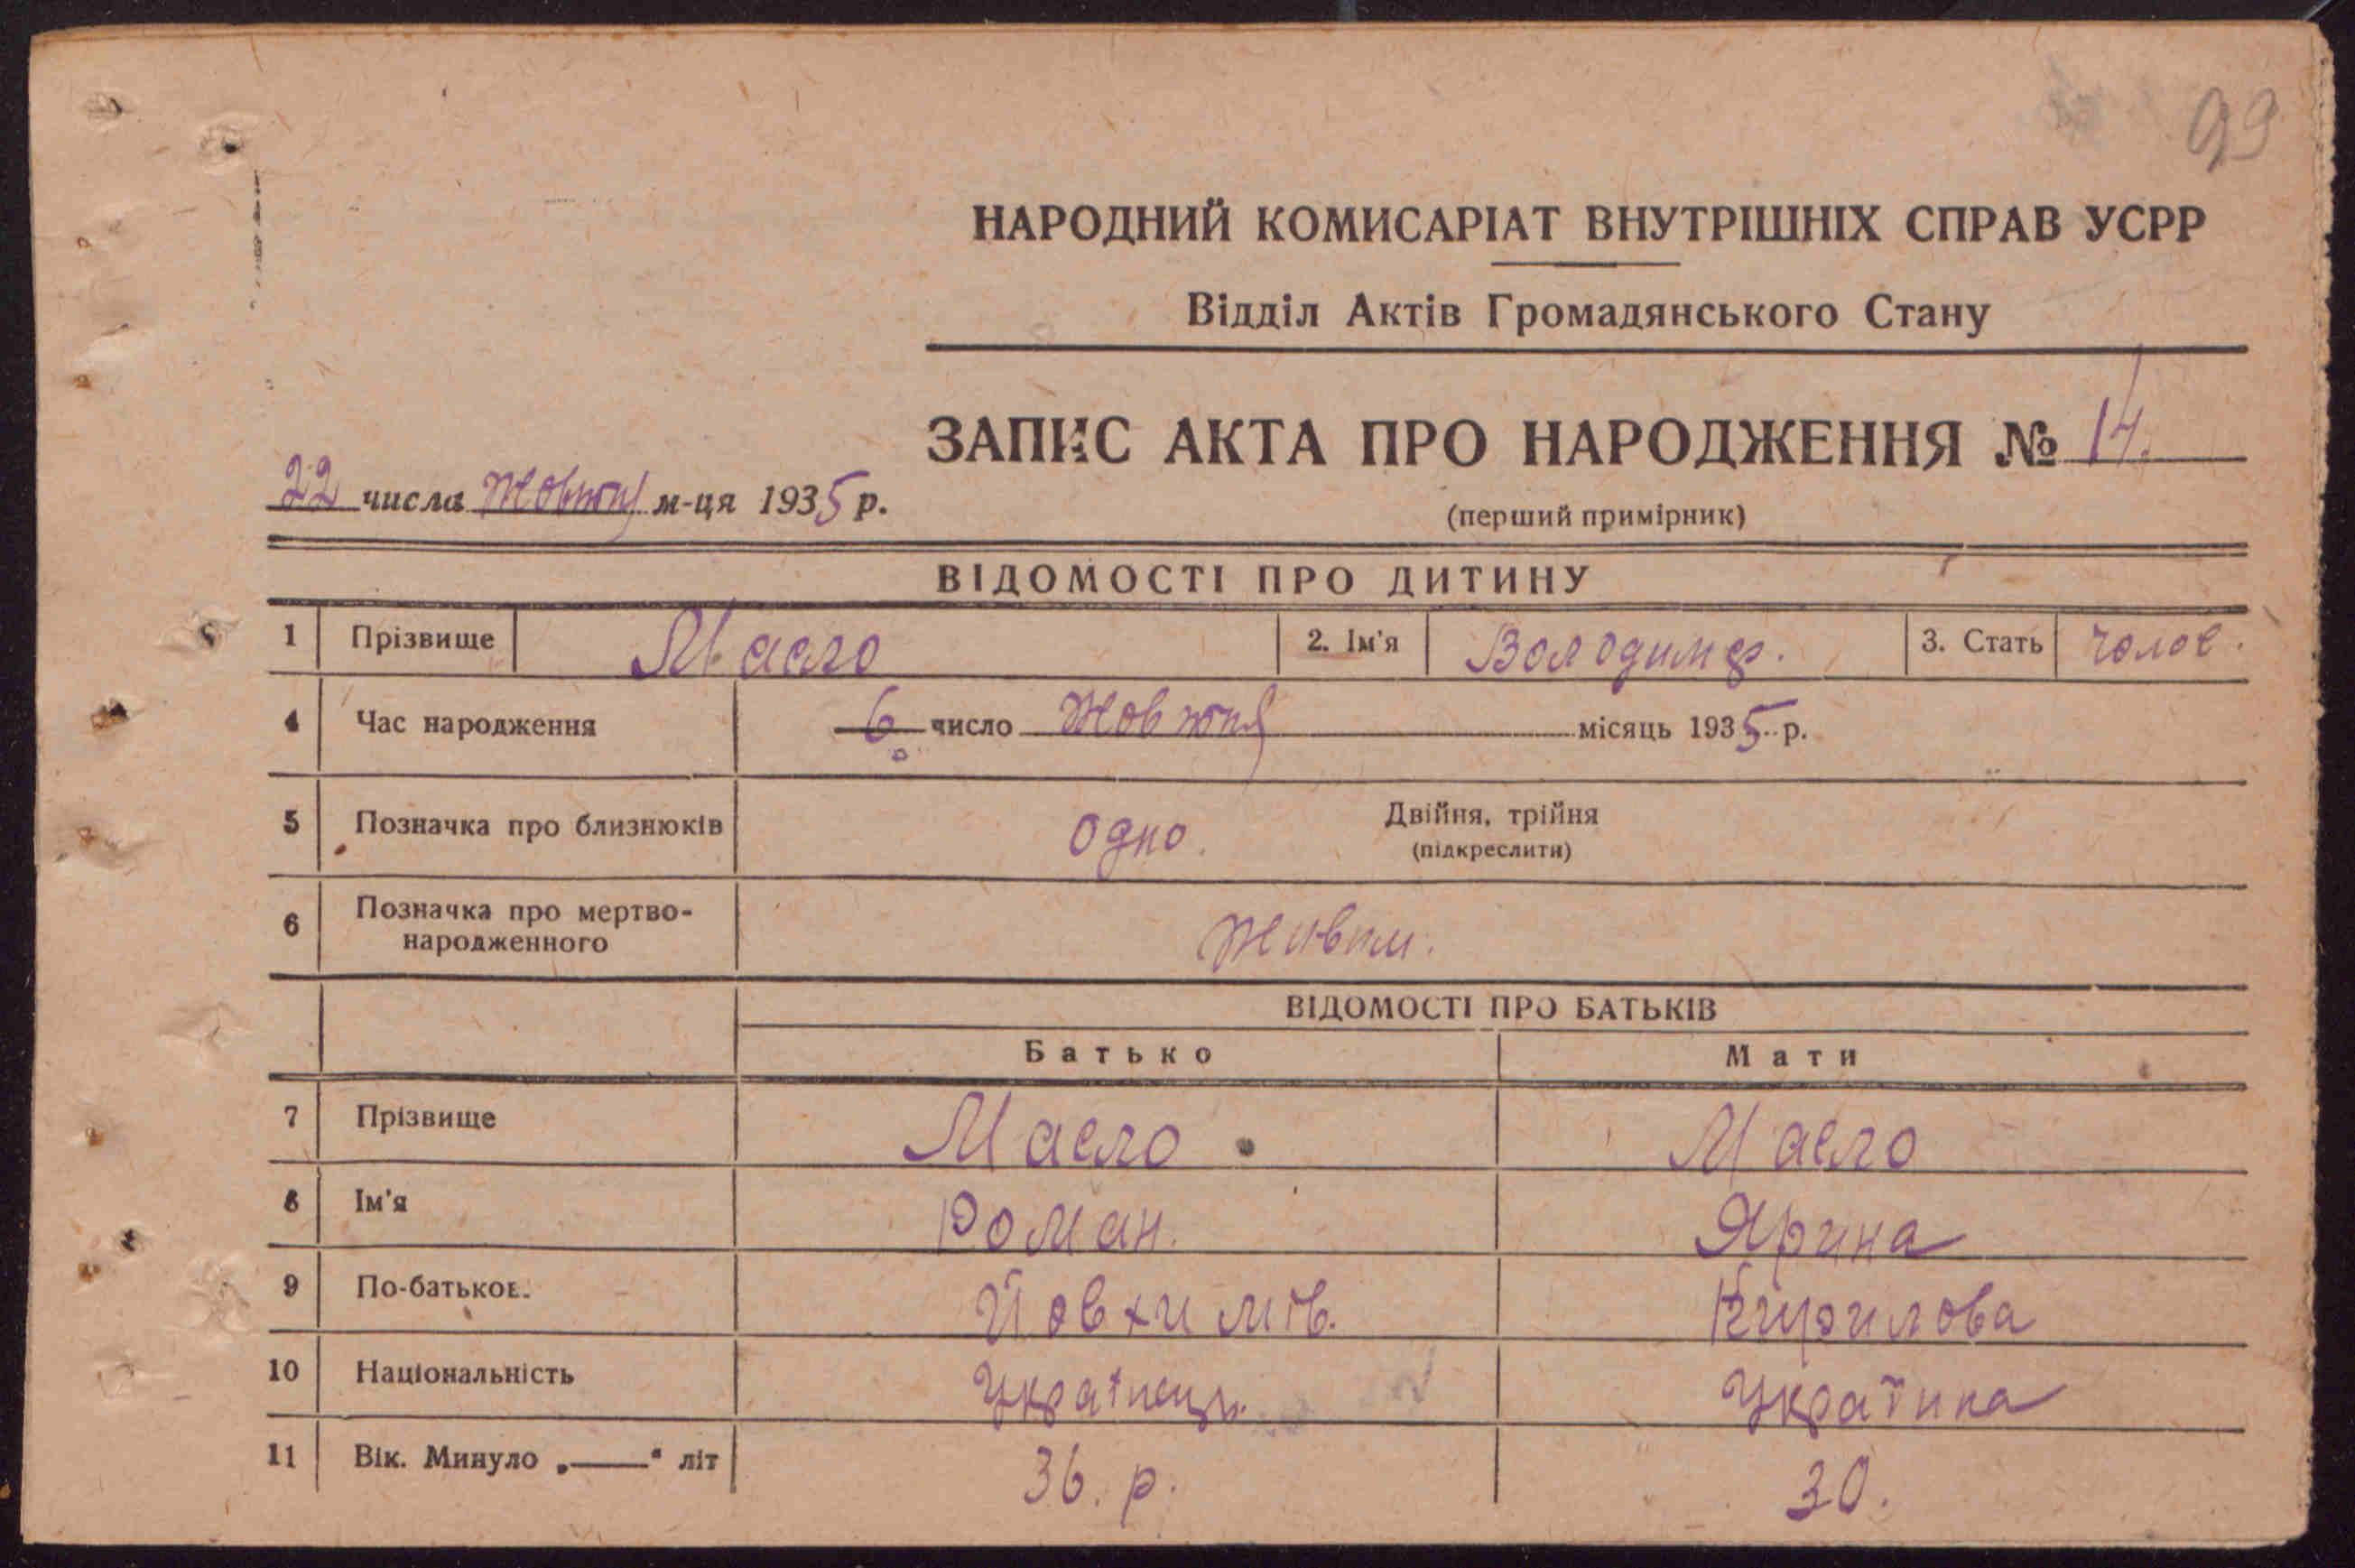 99
НАРОДНИЙ КОМИСАРІАТ ВНУТРІШНІХ СПРАВ УСРР
Відділ Актів Громадянського Стану
ЗАПИС АКТА ПРО НАРОДЖЕННЯ № 14.
22 числа Жовтня м-ця 1935 р.
(перший примірник)
ВІДОМОСТІ ПРО ДИТИНУ
1 Прізвище Масло 2. Ім'я Володимер. 3. Стать чолов.
4 Час народження 6 число Жовтня місяць 1935 р.
5 Позначка про близнюків Одно. Двійня, трійня
(підкреслити)
6 Позначка про мертво-
народженного
ВІДОМОСТІ ПРО БАТЬКІВ
Батько Мати
7 Прізвище Масло Масло
8 Ім'я Роман. Ярина
9 По-батьков. Йовхимів. Кирилова
10 Національність Українець. Українка
11 Вік. Минуло „——“ літ 36. р. 30.